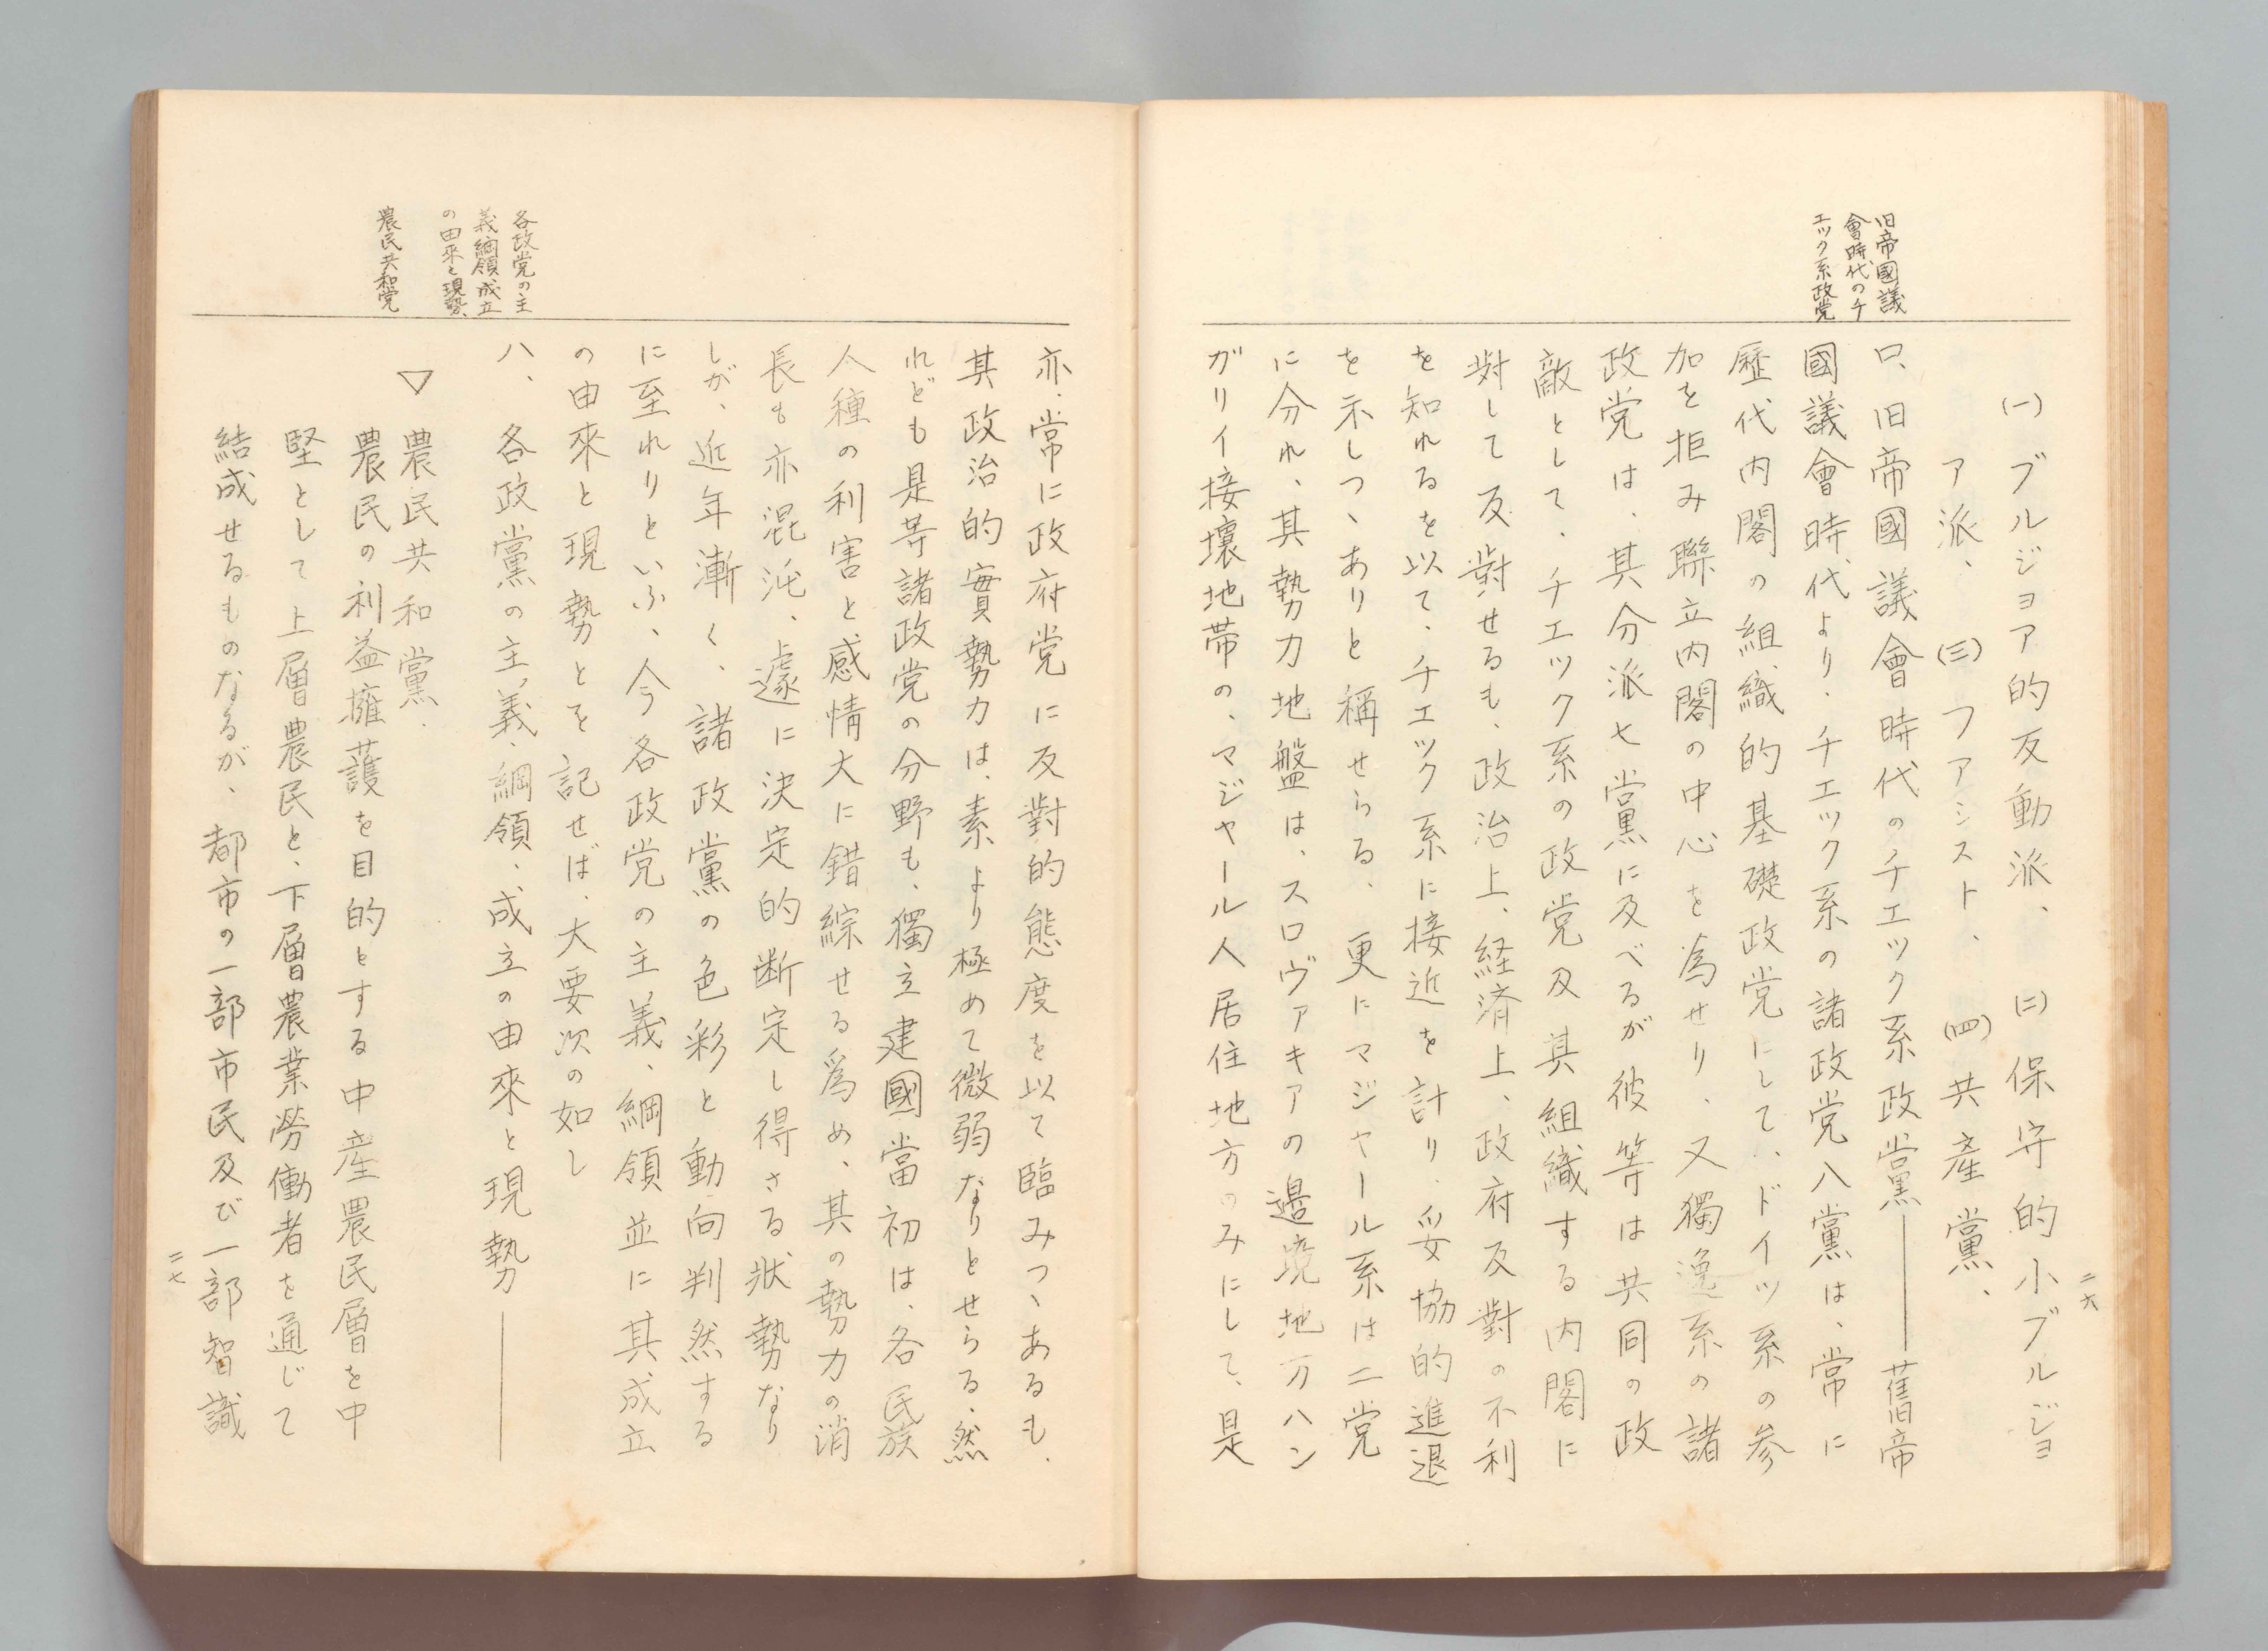 旧帝國議
會時代のチ
エック系政党
二六
(一)ブルジョア的反動派、(二)保守的小ブルジョ
ア派、(三)ファシスト、(四)共產黨、
ロ、旧帝國議會時代のチエック系政黨――舊帝
國議會時代より、チエック系の諸政党八黨は、常に
歷代内閣の組織的基礎政党にして、ドイツ系の参
加を拒み聯立内閣の中心を為せり、又獨逸系の諸
政党は、其分派七黨に及べるが彼等は共同の政
敵として、チエック系の政党及其組織する内閣に
対して反對せるも、政治上、経済上、政府反對の不利
を知れるを以て、チエック系に接近を計り、妥協的進退
を示しつゝありと稱せらる、更にマジャール系は二党
に分れ、其勢力地盤は、スロヴァキアの邊境地方ハン
ガリイ接壤地帯の、マジャール人居住地方のみにして、是
各政党の主
義綱領成立
の由來と現勢、
農民共和党
亦、常に政府党に反對的態度を以て臨みつゝあるも、
其政治的實勢力は、素より極めて微弱なりとせらる、然
れども是等諸政党の分野も、獨立建國當初は、各民族
人種の利害と感情大に錯綜せる爲め、其の勢力の消
長も亦混沌、遽に決定的断定し得さる狀勢なり
しが、近年漸く、諸政黨の色彩と動向判然する
に至れりといふ、今各政党の主義、綱領並に其成立
の由來と現勢とを記せば、大要次の如し
ハ、各政黨の主義、綱領、成立の由來と現勢――
▽農民共和黨、
農民の利益擁護を目的とする中産農民層を中
堅として上層農民と、下層農業勞働者を通じて
結成せるものなるが、都市の一部市民及び一部智識
二七